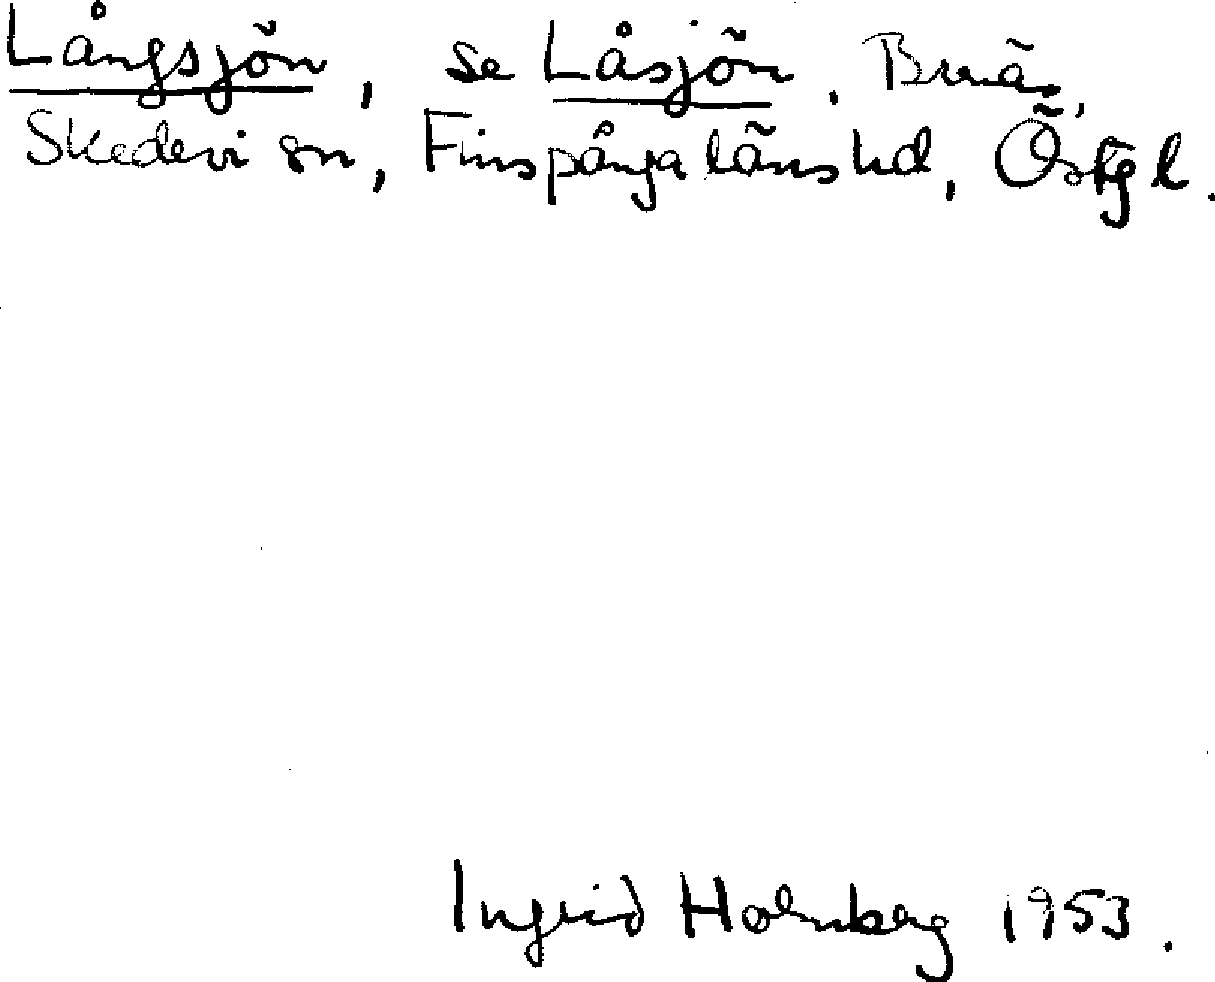 Långsjön, se Låsjön.
Skedevi sn, Finspångalänshd, Östgl.
Ingrid Holmberg 1953.